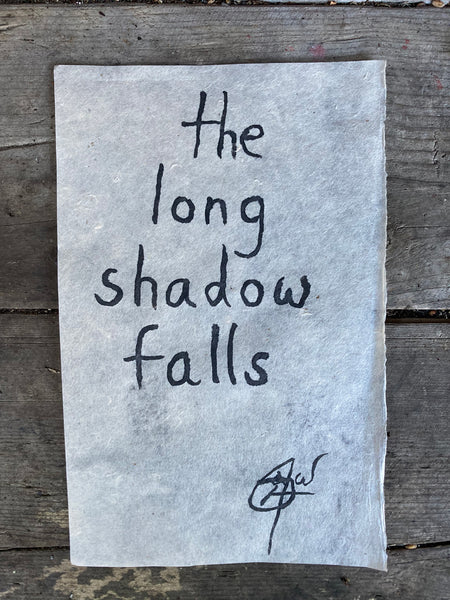 the
long
shadow
falls